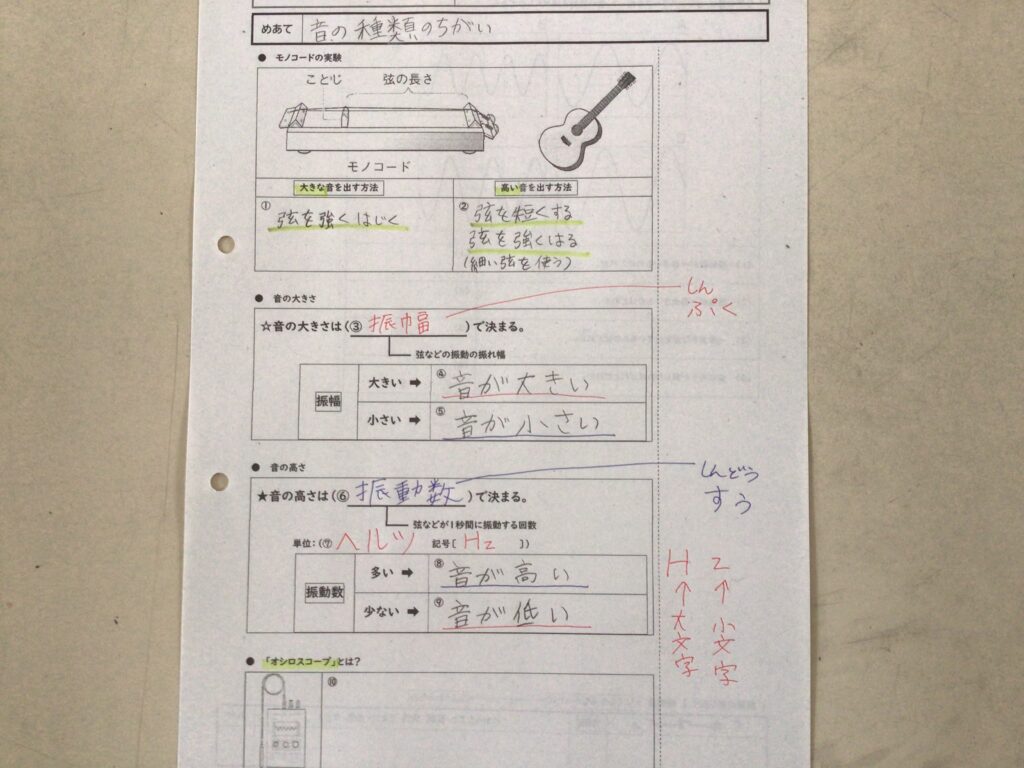 めあて 音の種類のちがい
● モノコードの実験
ことじ 弦の長さ
モノコード
大きな音を出す方法 高い音を出す方法
① 弦を強くはじく
② 弦を短くする
弦を強くはる
(細い弦を使う)
● 音の大きさ
しん
ぷく
☆音の大きさは(③ 振幅 )で決まる。
弦などの振動の振れ幅
振幅
大きい ➡ ④ 音が大きい
小さい ➡ ⑤ 音が小さい
● 音の高さ
しんどう
すう
★音の高さは(⑥ 振動数 )で決まる。
弦などが1秒間に振動する回数
単位:(⑦ ヘルツ 記号[ Hz ])
振動数
多い ➡ ⑧ 音が高い
少ない ➡ ⑨ 音が低い
H ↑ 大文字
z ↑ 小文字
● 「オシロスコープ」とは?
⑩